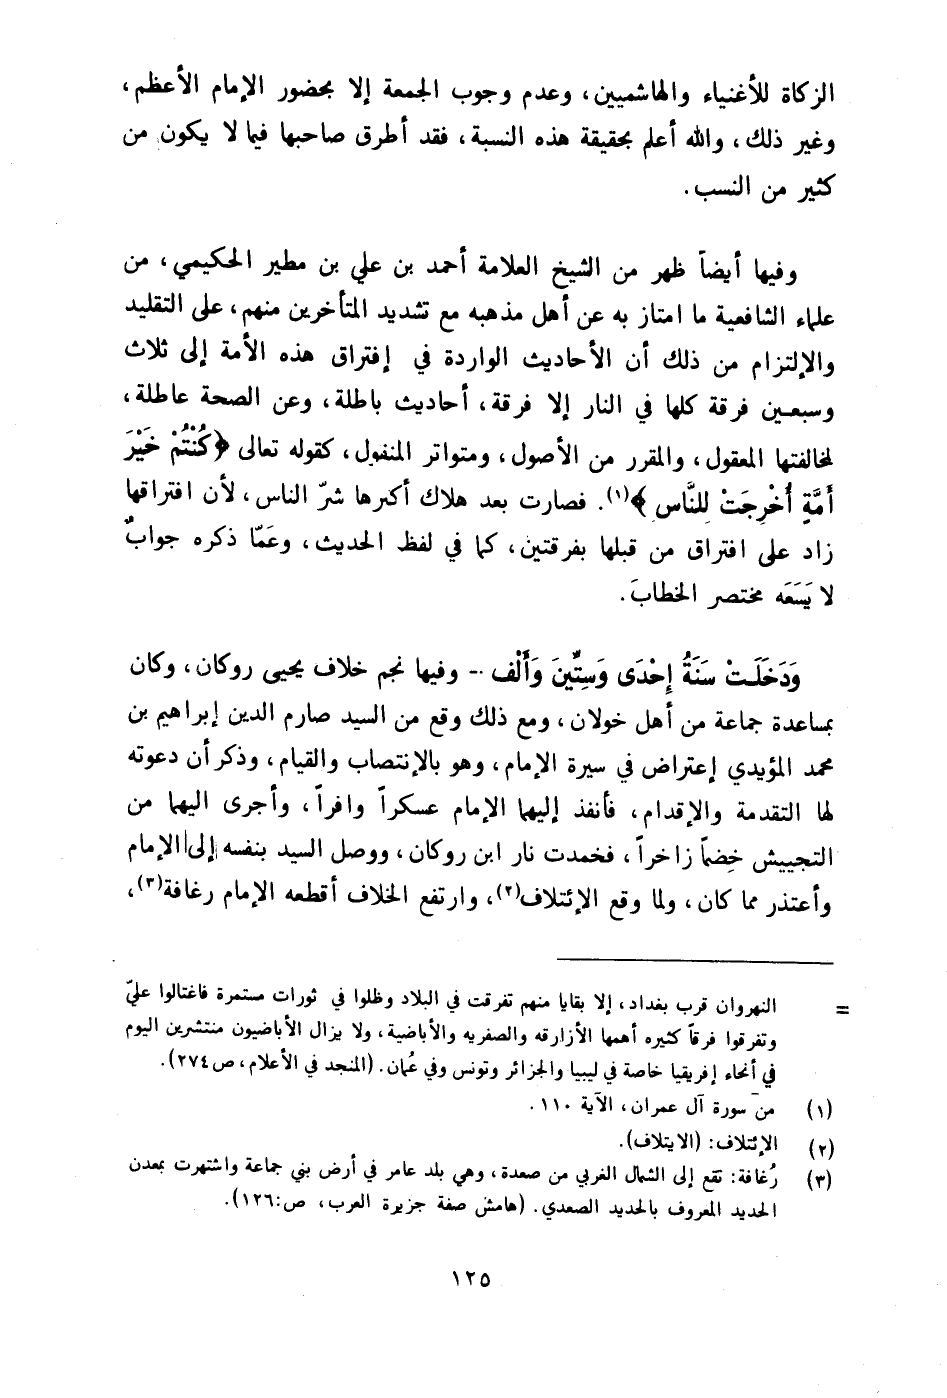 الزكاة للأغنياء والهاشميين، وعدم وجوب الجمعة إلا بحضور الإمام الأعظم،
وغير ذلك، والله أعلم بحقيقة هذه النسبة، فقد أطرق صاحبها فيما لا يكون من
كثير من النسب.
وفيها أيضاً ظهر من الشيخ العلامة أحمد بن علي بن مطير الحكيمي، من
علماء الشافعية ما امتاز به عن أهل مذهبه مع تشديد المتأخرين منهم، على التقليد
والإلتزام من ذلك أن الأحاديث الواردة في إفتراق هذه الأمة إلى ثلاث
وسبعين فرقة كلها في النار إلا فرقة، أحاديث باطلة، وعن الصحة عاطلة،
لمخالفتها المعقول، والمقرر من الأصول، ومتواتر المنقول، كقوله تعالى ﴿كُنْتُمْ خَيْرَ
أُمَّةٍ أُخْرِجَتْ لِلنَّاسِ﴾(١). فصارت بعد هلاك أكبرها شرّ الناس، لأن افتراقها
زاد على افتراق من قبلها بفرقتين، كما في لفظ الحديث، وعَمّا ذكره جوابٌ
لا يَسَعَه مختصر الخطابَ.
وَدَخَلَتْ سَنَةُ إِحْدَى وَسِتِّينَ وَأَلْف - وفيها نجم خلاف يحيى روكان، وكان
بمساعدة جماعة من أهل خولان، ومع ذلك وقع من السيد صارم الدين إبراهيم بن
محمد المؤيدي إعتراض في سيرة الإمام، وهو بالإنتصاب والقيام، وذكر أن دعوته
لها التقدمة والإقدام، فأنفذ إليهما الإمام عسكراً وافراً، وأجرى اليهما من
التجييش خِضماً زاخراً، فخمدت نار ابن روكان، ووصل السيد بنفسه إلى الإمام
وأعتذر مما كان، ولما وقع الإئتلاف(٢)، وارتفع الخلاف أقطعه الإمام رغافة(٣)،
= النهروان قرب بغداد، إلا بقايا منهم تفرقت في البلاد وظلوا في ثورات مستمرة فاغتالوا عليّ
وتفرقوا فرقاً كثيره أهمها الأزارقه والصفريه والأباضية، ولا يزال الأباضيون منتشرين اليوم
في أنحاء إفريقيا خاصة في ليبيا والجزائر وتونس وفي عُمان. (المنجد في الأعلام، ص٢٧٤).
(١) من سورة آل عمران، الآية ١١٠.
(٢) الإئتلاف: (الايتلاف).
(٣) رُغافة: تقع إلى الشمال الغربي من صعدة، وهي بلد عامر في أرض بني جماعة واشتهرت بمعدن
الحديد المعروف بالحديد الصعدي. (هامش صفة جزيرة العرب، ص:١٢٦).
١٢٥